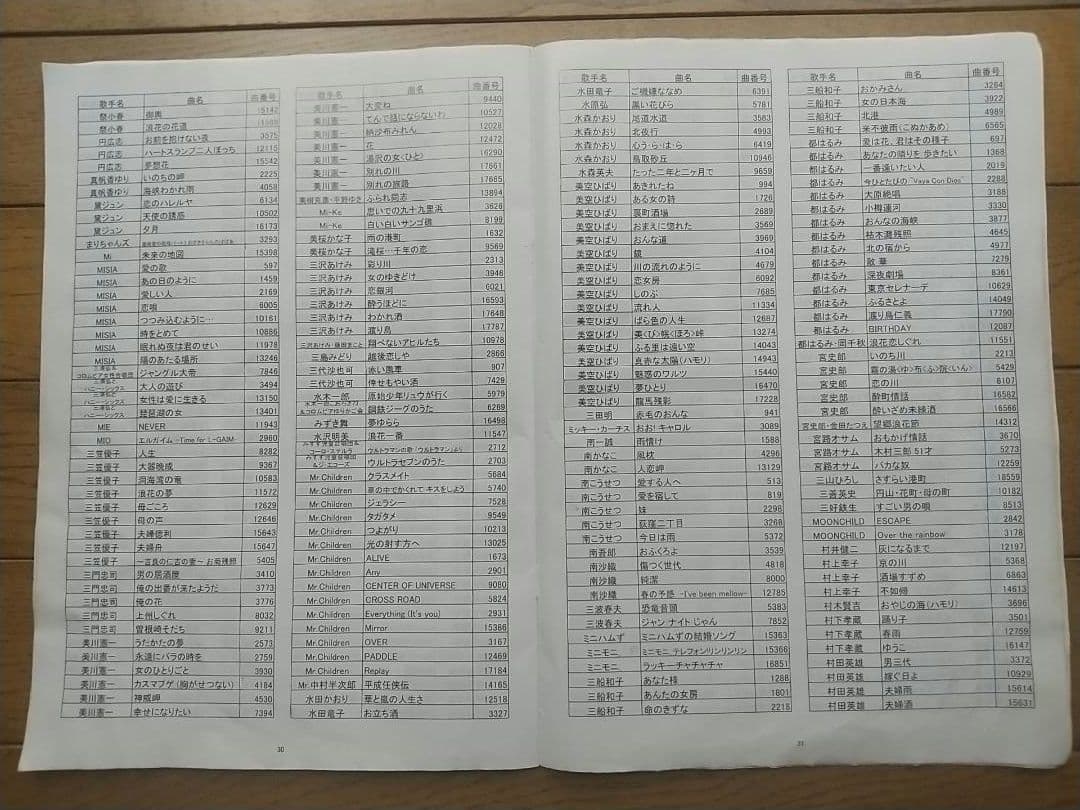 歌手名 曲名 曲番号
祭小春 御輿 5142
祭小春 浪花の花道
円広志 お前を抱けない夜 3575
円広志 ハートスランプ二人ぼっち 12115
円広志 夢想花 15542
真帆香ゆり いのちの岬 2225
真帆香ゆり 海峡わかれ雨 4058
黛ジュン 恋のハレルヤ 6134
黛ジュン 天使の誘惑 10502
黛ジュン 夕月 16173
まりちゃんズ 3293
Mi 未来の地図 15398
MISIA 愛の歌 597
MISIA あの日のように 1459
MISIA 愛しい人 2169
MISIA 恋唄 6005
MISIA つつみ込むように… 10161
MISIA 時をとめて 10886
MISIA 眠れぬ夜は君のせい 11978
MISIA 陽のあたる場所 13246
コロムビア女性合唱団 ジャングル大帝 7846
ハニー・シックス 大人の遊び 3494
ハニー・シックス 女性は愛に生きる 13150
ハニー・シックス 琵琶湖の女 13401
MIE NEVER 11943
MIO エルガイム -Time for L-GAIM- 2960
三笠優子 人生 8282
三笠優子 大器晩成 9367
三笠優子 洞海湾の竜 10583
三笠優子 浪花の夢 11572
三笠優子 母ごころ 12629
三笠優子 母の声 12646
三笠優子 夫婦徳利 15643
三笠優子 夫婦舟 15647
三笠優子 ～吉良の仁吉の妻～ お菊残照 5405
三門忠司 男の居酒屋 3410
三門忠司 俺の出番が来たようだ 3773
三門忠司 俺の花 3776
三門忠司 上州しぐれ 8032
三門忠司 曽根崎そだち 9211
美川憲一 うたかたの夢 2573
美川憲一 永遠にバラの時を 2759
美川憲一 女のひとりごと 3930
美川憲一 カスマプゲ (胸がせつない) 4184
美川憲一 神威岬 4530
美川憲一 幸せになりたい 7394
歌手名 曲名 曲番号
美川憲一 大変ね 9440
美川憲一 てんで話にならないわ 10527
美川憲一 納沙布みれん 12028
美川憲一 花 12472
美川憲一 湯沢の女<ひと> 16290
美川憲一 別れの川 17661
美川憲一 別れの旅路 17665
美樹克彦・平野ゆき ふられ同志 13894
Mi-Ke 思いでの九十九里浜 3626
Mi-Ke 白い白いサンゴ礁 8199
美桜かな子 雨の港町 1632
美桜かな子 滝桜…千年の恋 9569
三沢あけみ 彩り川 2313
三沢あけみ 女のゆきどけ 3948
三沢あけみ 恋銀河 6021
三沢あけみ 酔うほどに 16593
三沢あけみ わかれ酒 17648
三沢あけみ 渡り鳥 17787
三沢あけみ・藤田まこと 翔べないアヒルたち 10978
三島みどり 越後恋しや 2866
三代沙也可 赤い風車 907
三代沙也可 倖せもやい酒 7429
水木一郎 原始少年リュウが行く 5979
&コロムビアゆりかご会 鋼鉄ジーグのうた 6269
みずき舞 夢ゆらら 16498
水沢明美 浪花一番 11547
コーロ・ステルラ ウルトラマンの歌 「ウルトラマン」より 2712
&ジ・エコーズ ウルトラセブンのうた 2703
Mr.Children クラスメイト 5684
Mr.Children 車の中でかくれてキスをしよう 5740
Mr.Children ジェラシー 7528
Mr.Children タガタメ 9549
Mr.Children つよがり 10213
Mr.Children 光の射す方へ 13025
Mr.Children ALIVE 1673
Mr.Children Any 2901
Mr.Children CENTER OF UNIVERSE 9080
Mr.Children CROSS ROAD 5824
Mr.Children Everything (It's you) 2931
Mr.Children Mirror 15386
Mr.Children OVER 3167
Mr.Children PADDLE 12469
Mr.Children Replay 17184
Mr.中村半次郎 平成任侠伝 14165
水田かおり 華と嵐の人生さ 12518
水田竜子 お立ち酒 3327
30
歌手名 曲名 曲番号
水田竜子 ご機嫌ななめ 6391
水原弘 黒い花びら 5781
水森かおり 尾道水道 3563
水森かおり 北夜行 4993
水森かおり 心・う・は・ら 6419
水森かおり 鳥取砂丘 10946
水森英夫 たった二年と二ヶ月で 9659
美空ひばり あきれたね 994
美空ひばり ある女の詩 1726
美空ひばり 裏町酒場 2689
美空ひばり おまえに惚れた 3569
美空ひばり おんな道 3969
美空ひばり 鏡 4104
美空ひばり 川の流れのように 4679
美空ひばり 恋女房 6092
美空ひばり しのぶ 7685
美空ひばり 流れ人 11334
美空ひばり ばら色の人生 12687
美空ひばり 美<び>咲<ほろ>峠 13274
美空ひばり ふる里は遠い空 14043
美空ひばり 真赤な太陽 (ハモリ) 14943
美空ひばり 魅惑のワルツ 15440
美空ひばり 夢ひとり 16470
美空ひばり 龍馬残影 17228
三田明 赤毛のおんな 941
ミッキー・カーチス おお!キャロル 3089
南一誠 雨情け 1588
南かなこ 風枕 4296
南かなこ 人恋岬 13129
南こうせつ 愛する人へ 513
南こうせつ 愛を宿して 819
南こうせつ 妹 2298
南こうせつ 荻窪二丁目 3268
南こうせつ 今日は雨 5372
南吾郎 おふくろよ 3539
南沙織 傷つく世代 4818
南沙織 純潔 8000
南沙織 春の予感 -I've been mellow- 12785
三波春夫 恐竜音頭 5383
三波春夫 ジャン ナイト じゃん 7852
ミニハムず ミニハムずの結婚ソング 15363
ミニモニ。 ミニモニ。テレフォン!リンリンリン 15366
ミニモニ。 ラッキーチャチャチャ 16851
三船和子 あなた様 1288
三船和子 あんたの女房 1801
三船和子 命のきずな 2215
歌手名 曲名 曲番号
三船和子 おかみさん 3264
三船和子 女の日本海 3922
三船和子 北港 4989
三船和子 米不彼雨 (こぬかあめ) 6565
都はるみ 愛は花、君はその種子 697
都はるみ あなたの隣りを歩きたい 1368
都はるみ 一番逢いたい人 2019
都はるみ 今ひとたびの "Vaya Con Dios" 2288
都はるみ 大原絶唱 3188
都はるみ 小樽運河 3330
都はるみ おんなの海峡 3877
都はるみ 枯木灘残照 4645
都はるみ 北の宿から 4977
都はるみ 散華 7279
都はるみ 深夜劇場 8361
都はるみ 東京セレナーデ 10629
都はるみ ふるさとよ 14049
都はるみ 渡り鳥仁義 17790
都はるみ BIRTHDAY 12087
都はるみ・岡千秋 浪花恋しぐれ 11551
宮史郎 いのち川 2213
宮史郎 霧の湯<ゆ>布<ふ>院<いん> 5429
宮史郎 恋の川 6107
宮史郎 酔町情話 16582
宮史郎 酔いざめ未練酒 16566
宮史郎・金田たつえ 望郷浪花節 14312
宮路オサム おもかげ情話 3670
宮路オサム 木村三郎 51才 5273
宮路オサム バカな奴 12259
三山ひろし さすらい港町 18559
三善英史 円山・花町・母の町 10182
三好鉄生 すごい男の唄 8513
MOONCHILD ESCAPE 2842
MOONCHILD Over the rainbow 3178
村井健二 灰になるまで 12197
村上幸子 京の川 5368
村上幸子 酒場すずめ 6863
村上幸子 不如帰 14613
村木賢吉 おやじの海 (ハモリ) 3696
村下孝蔵 踊り子 3501
村下孝蔵 春雨 12759
村下孝蔵 ゆうこ 16147
村田英雄 男三代 3372
村田英雄 嫁ぐ日よ 10929
村田英雄 夫婦雨 15614
村田英雄 夫婦酒 15631
31